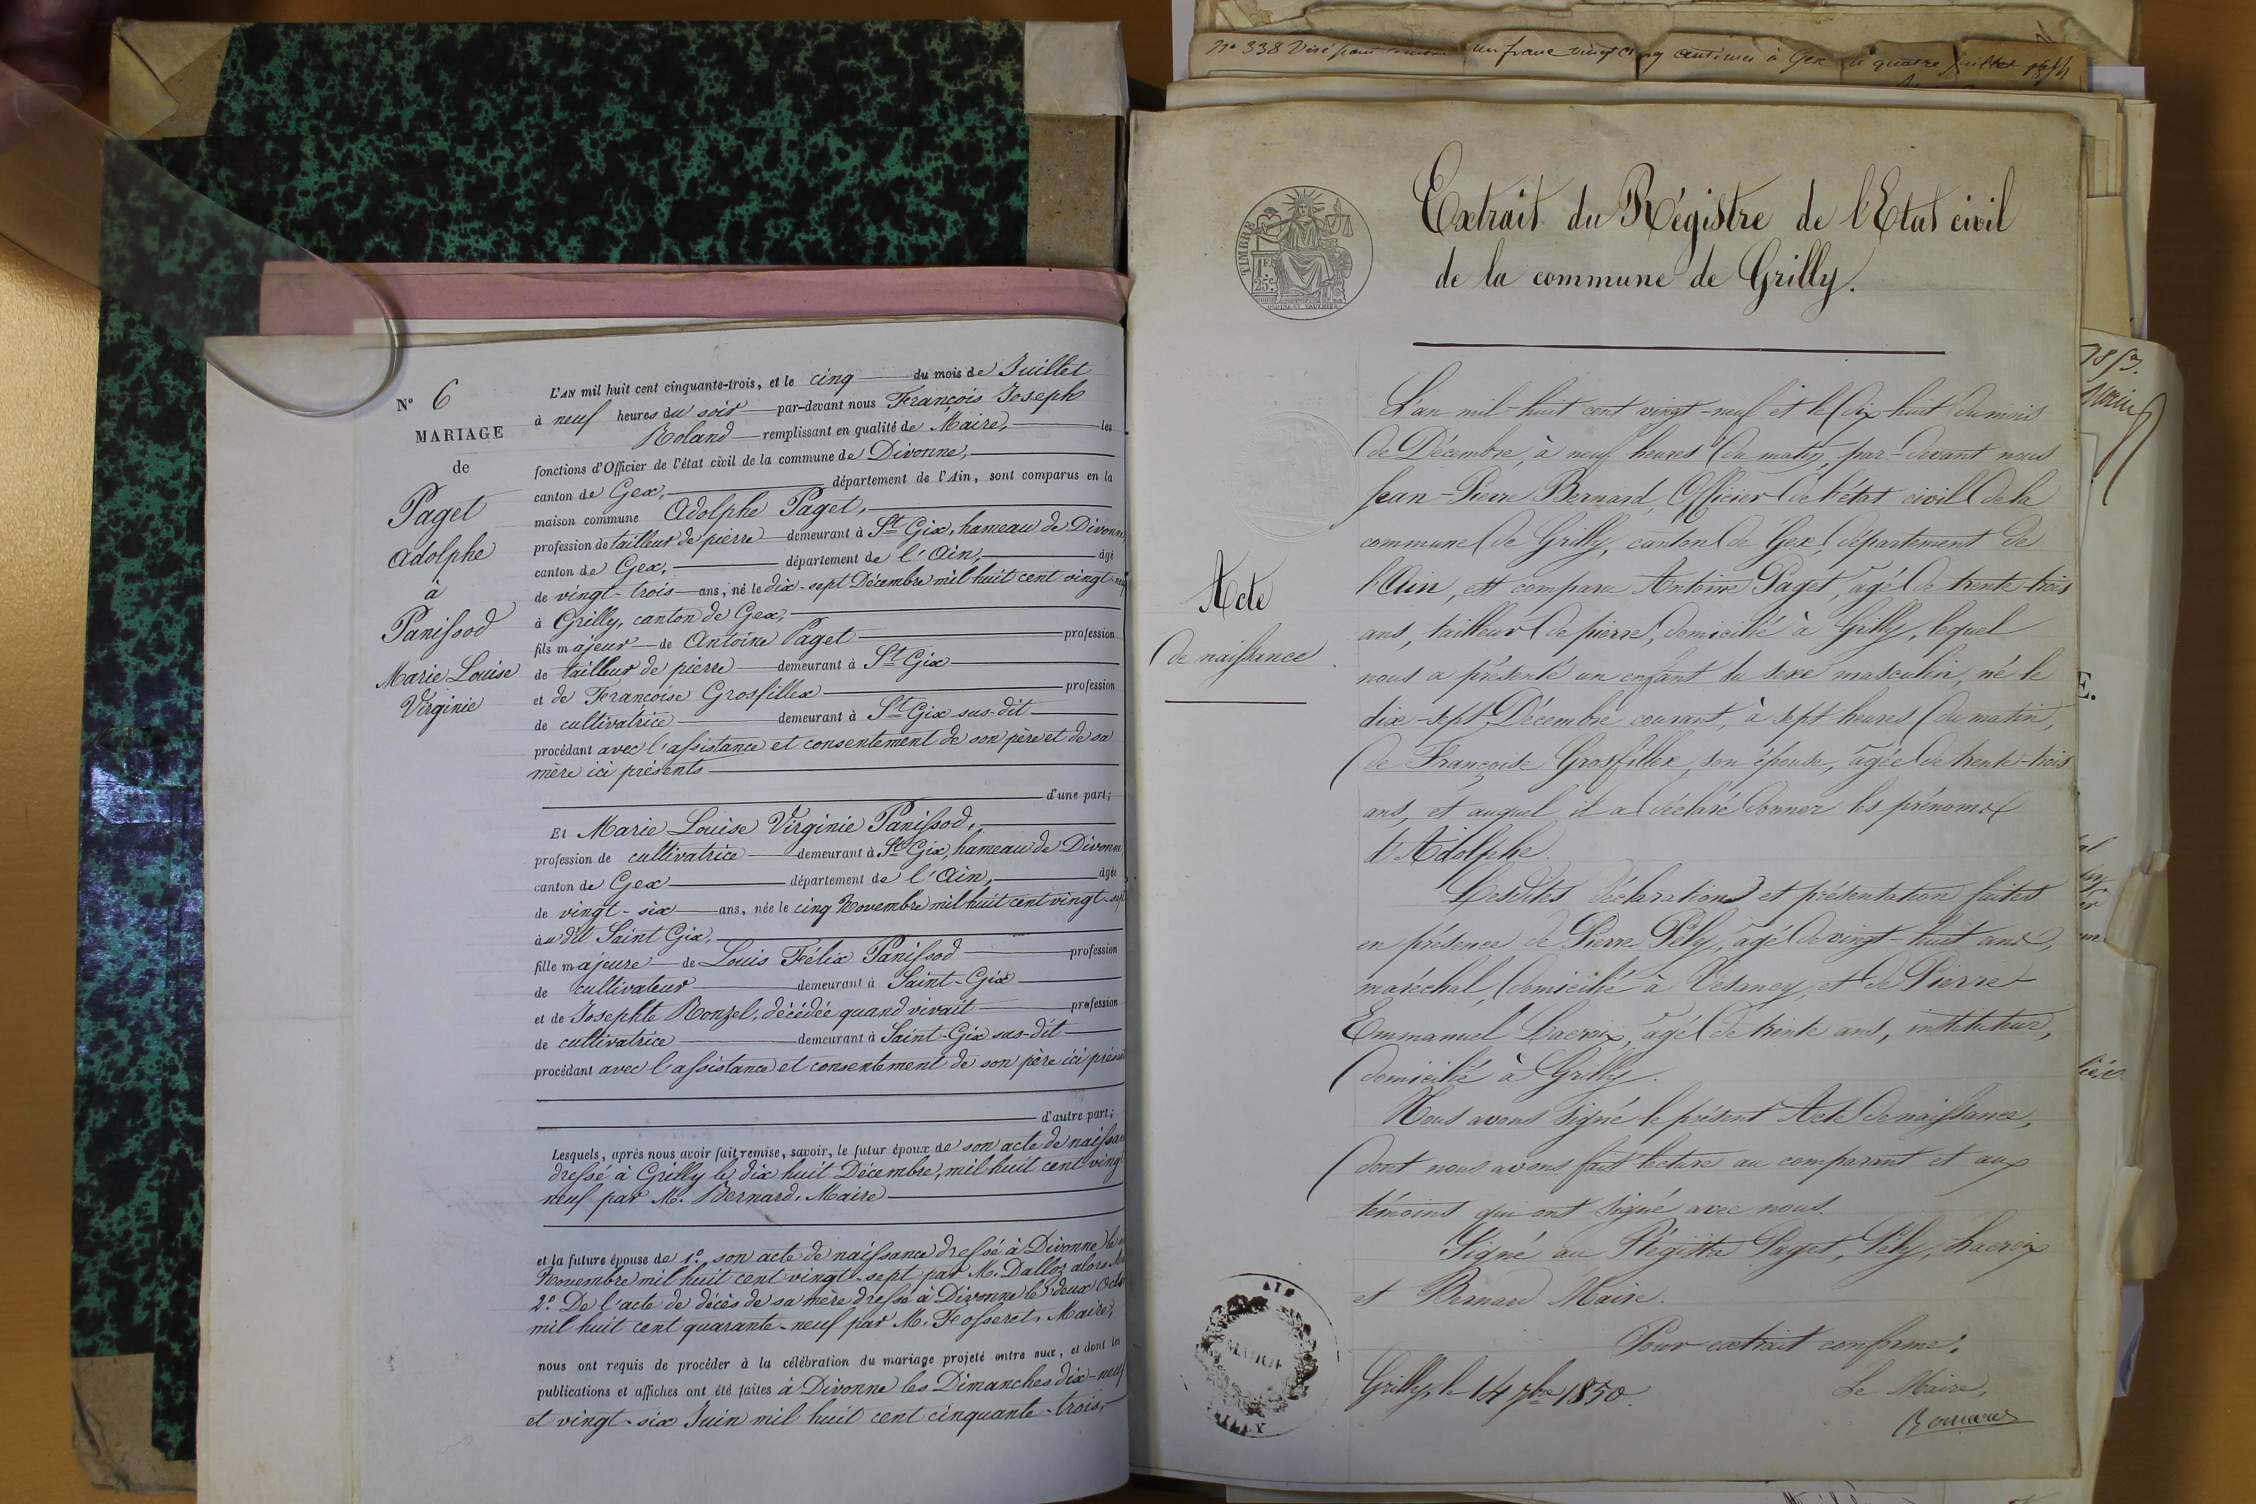 N° 6
MARIAGE
de
Paget
Adolphe
à
Panissod
Marie Louise
Virginie
L'AN mil huit cent cinquante-trois, et le cinq du mois de Juillet
à neuf heures du soir par-devant nous François Joseph
Roland remplissant en qualité de Maire, les
fonctions d'Officier de l'état civil de la commune de Divonne,
canton de Gex, département de l'Ain, sont comparus en la
maison commune Adolphe Paget,
profession de tailleur de pierre demeurant à St Gix, hameau de Divonne
canton de Gex, département de l'Ain, âgé
de vingt-trois ans, né le dix-sept Décembre mil huit cent vingt-neuf
à Grilly, canton de Gex,
fils majeur de Antoine Paget profession
de tailleur de pierre demeurant à St Gix
et de Françoise Grosfillex profession
de cultivatrice demeurant à St Gix sus-dit
procédant avec l'assistance et consentement de son père et de sa
mère ici présents
d'une part;
Et Marie Louise Virginie Panissod,
profession de cultivatrice demeurant à St Gix, hameau de Divonne
canton de Gex département de l'Ain, âgée
de vingt-six ans, née le cinq Novembre mil huit cent vingt-sept
au dit Saint Gix,
fille majeure de Louis Félix Panissod profession
de cultivateur demeurant à Saint-Gix
et de Josephte Ronzel, décédée quand vivait profession
de cultivatrice demeurant à Saint-Gix sus-dit
procédant avec l'assistance et consentement de son père ici présent
d'autre part;
Lesquels, après nous avoir fait remise, savoir, le futur époux de son acte de naissan
dressé à Grilly le dix huit Décembre, mil huit cent vingt
neuf par M. Bernard, Maire
et la future épouse de 1° son acte de naissance dressé à Divonne le
Novembre mil huit cent vingt-sept par M. Dalloz alors
2° De l'acte de décès de sa mère dressé à Divonne le deux Octo
mil huit cent quarante-neuf par M. Fosseret, Maire,
nous ont requis de procéder à la célébration du mariage projeté entre eux, et dont les
publications et affiches ont été faites à Divonne les Dimanches dix-neuf
et vingt-six Juin mil huit cent cinquante-trois,
N° 338 Visé pour timbre un franc vingt cinq centimes à Gex le quatre Juillet
TIMBRE
1 F.
25 c.
Extrait du Régistre de l'Etat civil
de la commune de Grilly.
Acte
de naissance
L'an mil-huit cent vingt-neuf et le dix-huit du mois
de Décembre, à neuf heures du matin, par-devant nous
Jean-Pierre Bernard, Officier de l'état civil de la
commune de Grilly, canton de Gex, département de
l'Ain, est comparu Antoine Paget, âgé de trente-trois
ans, tailleur de pierre, domicilié à Grilly, lequel
nous a présenté un enfant du sexe masculin, né le
dix-sept Décembre courant, à sept heures du matin,
de Françoise Grosfillex, son épouse, âgée de trente-trois
ans, et auquel il a déclaré donner les prénoms
d'Adolphe.
Lesdites déclaration et présentation faites
en présence de Pierre Pély, âgé de vingt-huit ans,
maréchal, domicilié à Vesancy, et de Pierre
Emmanuel Lacroix, âgé de trente ans, instituteur,
domicilié à Grilly.
Nous avons signé le présent Acte de naissance,
dont nous avons fait lecture au comparant et aux
témoins qui ont signé avec nous.
Signé au Régistre Paget, Pély, Lacroix
et Bernard Maire.
Pour extrait conforme:
Grilly, le 14 7bre 1850.
Le Maire,
Bernard
AIN
MAIRIE